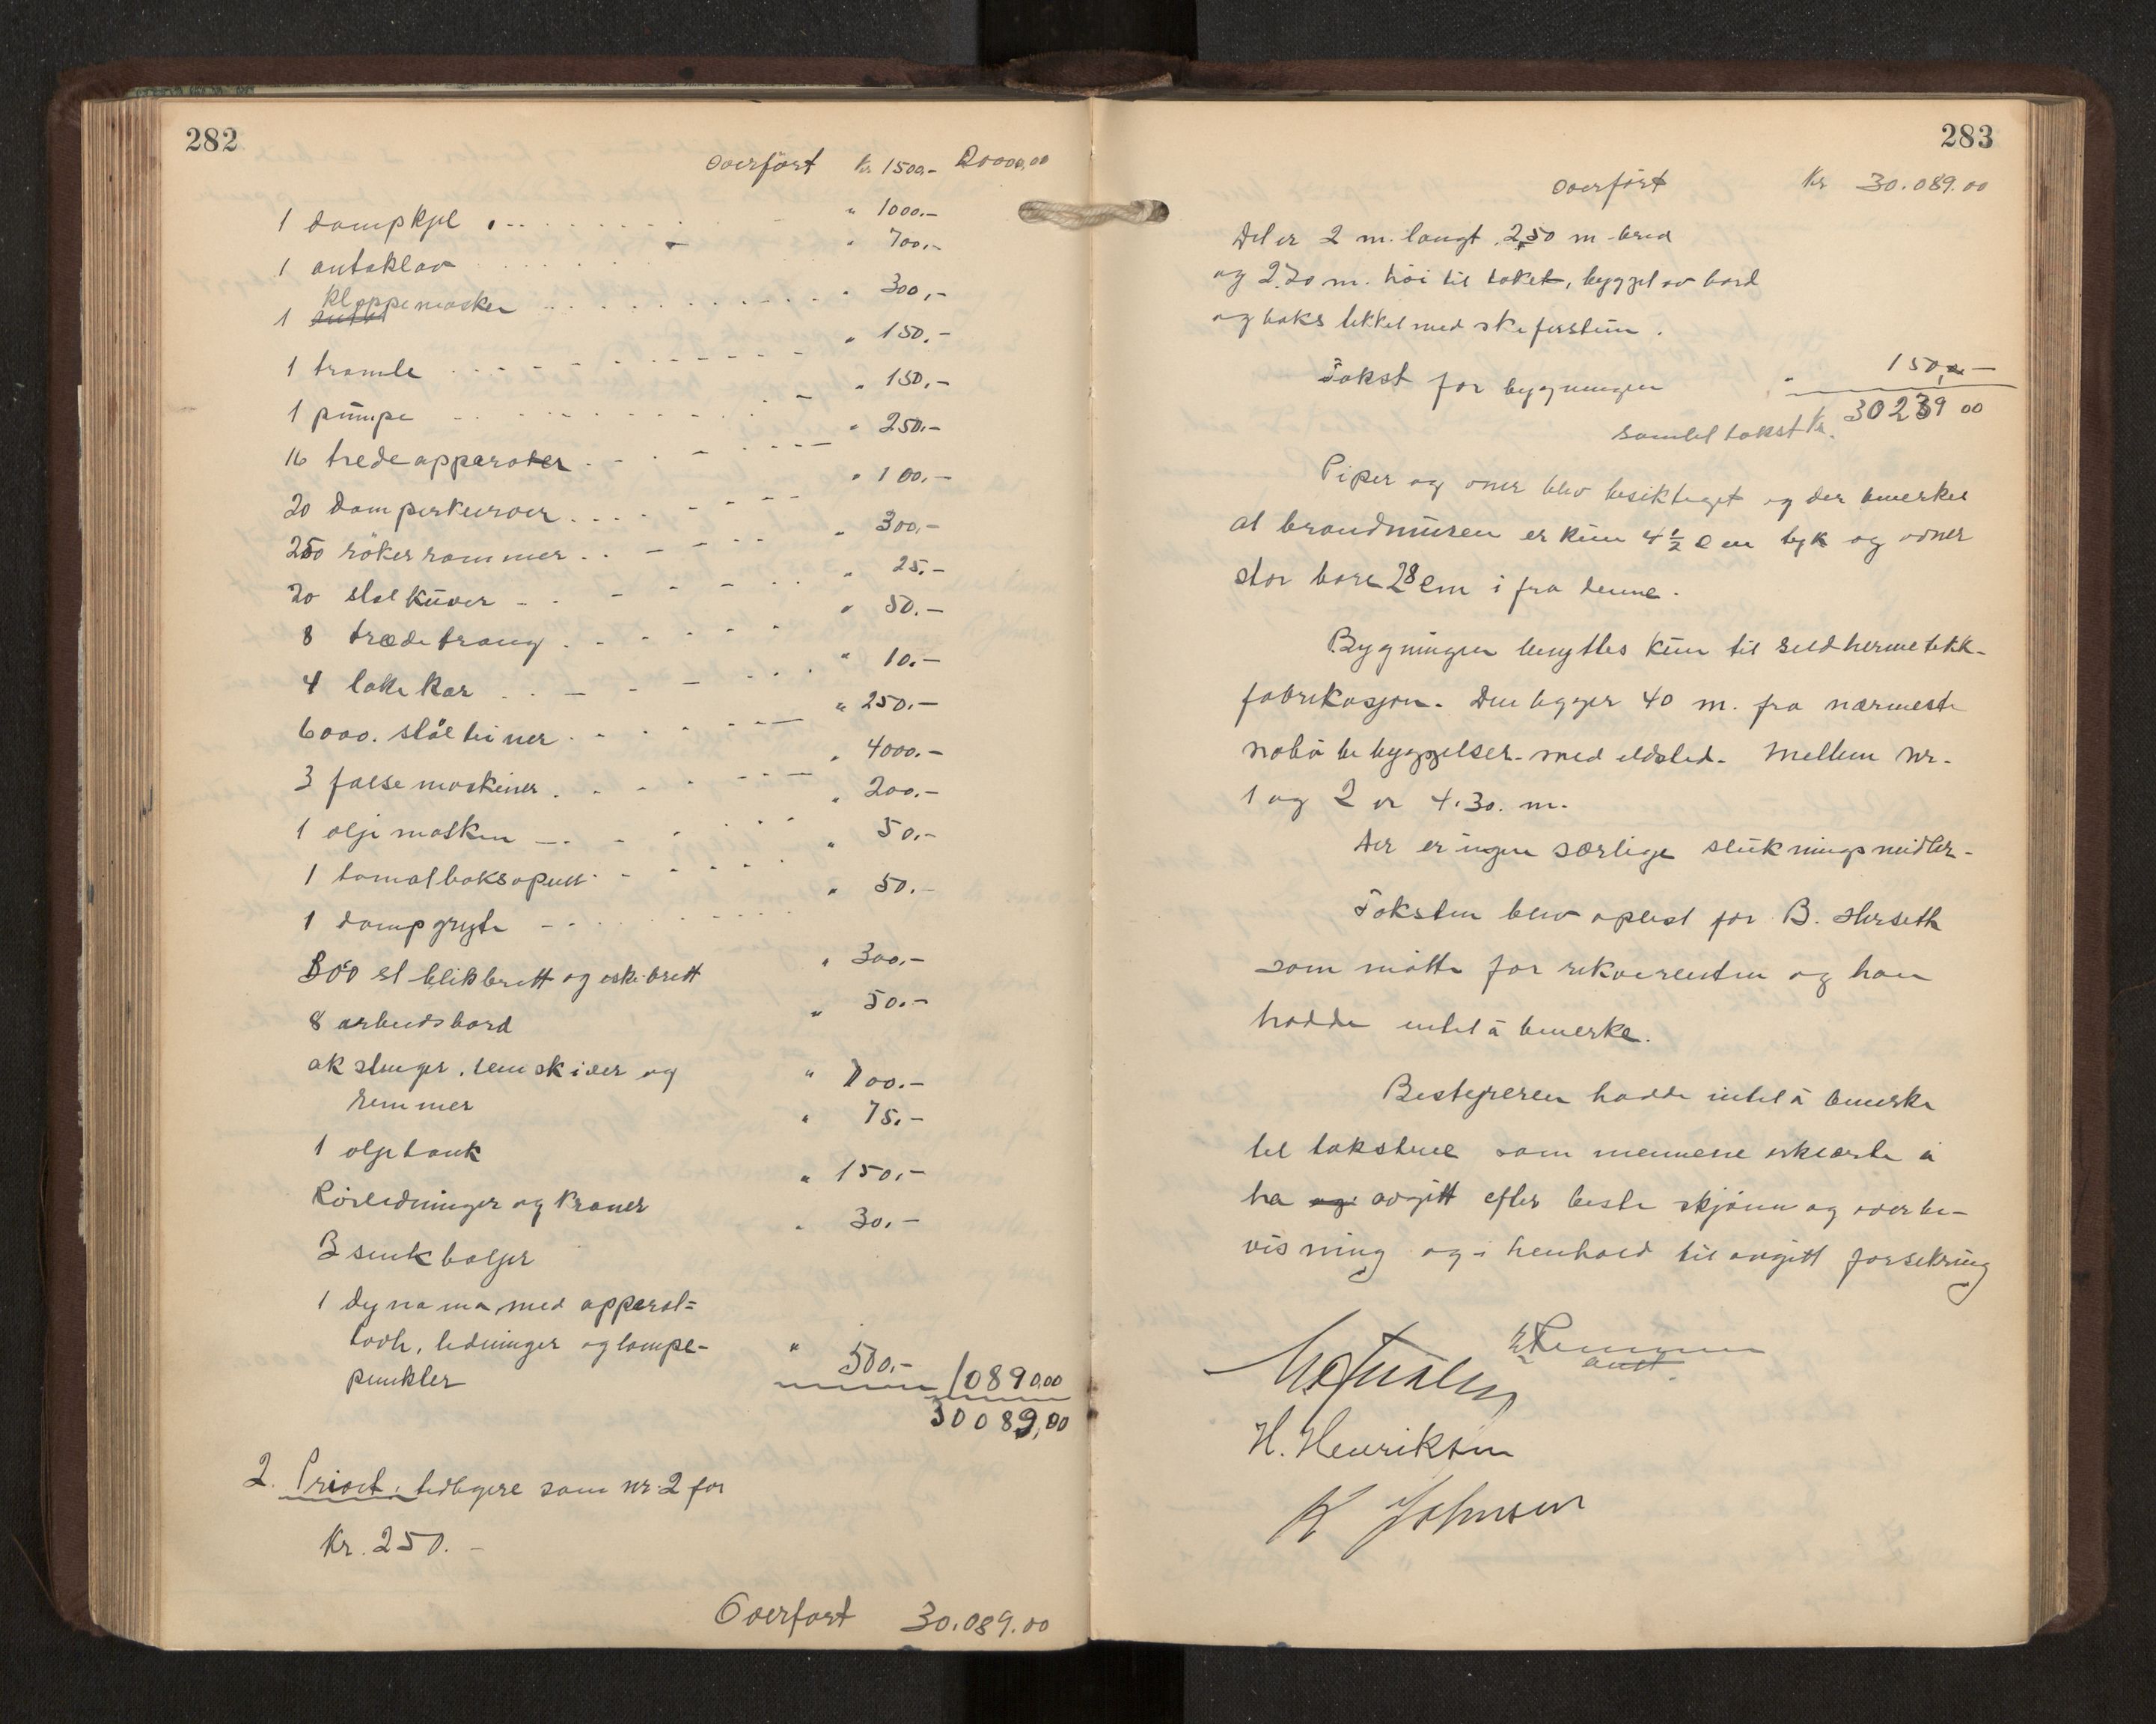 282
Overført Kr 1500.- 20000,00
1 dampkjel . . . . . . " 1000.-
1 autoklav . . . . . . " 700,-
1 kloppemaskin . . . . . . " 300,-
1 tromle . . . . . . " 150.-
1 pumpe . . . . . . " 150,-
16 tredeapparater . . . . . . " 250.-
20 damperkurver . . . . . . " 100.-
250 rökerrammer . . . . . . " 300,-
20 stol kuver . . . . . . " 25.-
8 trædetraug . . . . . . " 50.-
4 lakekar . . . . . . " 10.-
6000. ståltiner . . . . . . " 250.-
3 falsemaskiner . . . . . . " 4000.-
1 oljemaskin . . . . . . " 200.-
1 tomatboksapun . . . . . . " 50.-
1 dampgryte . . . . . . " 50.-
300 st blikbrett og eskebrett " 300.-
8 arbeidsbord " 50.-
akslinger, remskiver og
remmer " 100.-
1 oljetank " 75.-
Rörledninger og kraner " 150.-
3 sinkbaljer " 30.-
1 dynamo, med apparat-
tavle, ledninger og lampe-
punkter " 500.- 10890,00
30089,00
2. Privet, tidligere som nr. 2 for
Kr. 250.-
Overfört 30.089.00
283
Overfört Kr 30.089.00
Det er 2 m. langt, 2,50 m bred
og 2.20 m. höi til taket, bygget av bord
og taks tekket med skeferstein.
Takst for bygningen " 150,-
Samlet takst kr. 30239 00
Piper og ovner blev besiktiget og der bemerkes
at brandmuren er kun 4½ cm tyk og ovner
står bare 28 cm i fra denne.
Bygningen benyttes kun til sildhermetikk-
fabrikasjon. Den ligger 40 m. fra nærmeste
nabobebyggelser med ildsted. Mellem nr.
1 og 2 er 4.30. m.
Der er ingen særlige slukningsmidler.
Taksten blev oplest for B. Herseth
som mötte for rekvirenten og han
hadde intet å bemerke.
Bestyreren hadde intet å bemerke
til takstene som mennene erklærte å
ha avgitt efter beste skjönn og overbe-
visning og i henhold til avgitt forsikring
H. Henriksen
K Johnsen